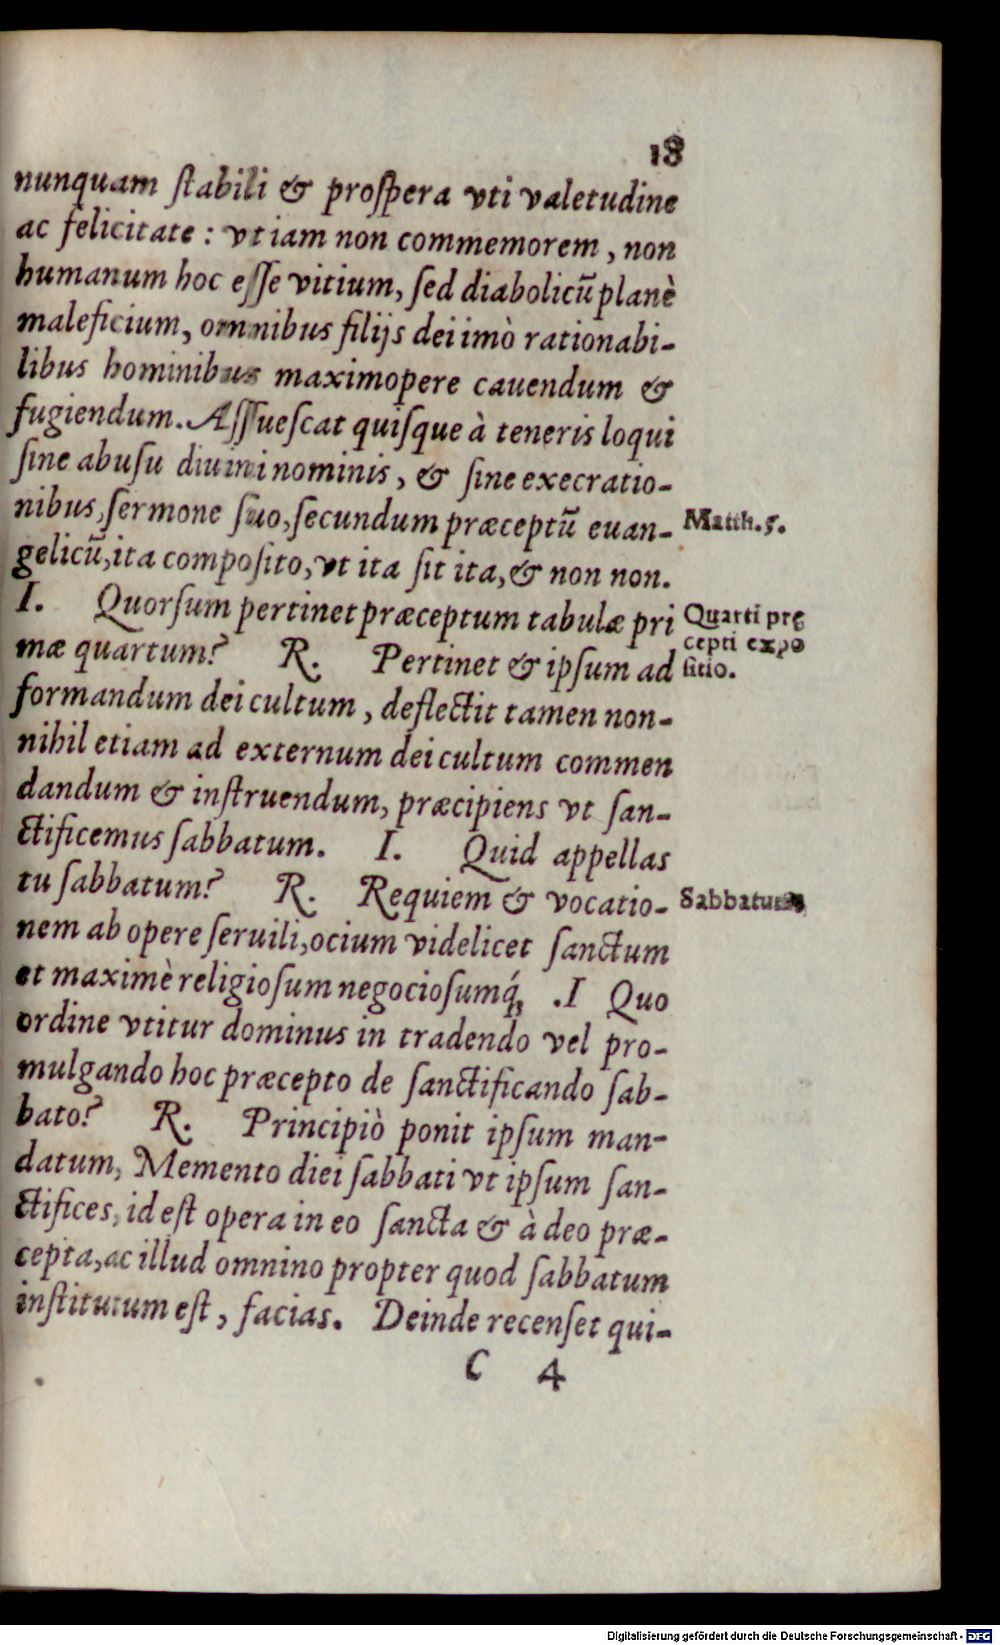 18
nunquam ſtabili & proſpera vti valetudine
ac felicitate : vt iam non commemorem , non
humanum hoc eſſe vitium, ſed diabolicũ planè
maleficium, omnibus filijs dei imò rationabi-
libus hominibus maximopere cauendum &
fugiendum. Aſſueſcat quiſque à teneris loqui
ſine abuſu diuini nominis , & ſine execratio-
nibus, ſermone ſuo, ſecundum præceptũ euan-
Matth. 5.
gelicũ, ita compoſito, vt ita ſit ita, & non non.
I. Quorſum pertinet præceptum tabulæ pri
Quarti prę
mæ quartum? R. Pertinet & ipſum ad
cepti expo
ſitio.
formandum dei cultum , deflectit tamen non-
nihil etiam ad externum dei cultum commen
dandum & inſtruendum, præcipiens vt ſan-
ctificemus ſabbatum. I. Quid appellas
tu ſabbatum? R. Requiem & vocatio-
Sabbatum
nem ab opere ſeruili, ocium videlicet ſanctum
et maximè religioſum negocioſumq́; .I Quo
ordine vtitur dominus in tradendo vel pro-
mulgando hoc præcepto de ſanctificando ſab-
bato? R. Principiò ponit ipſum man-
datum, Memento diei ſabbati vt ipſum ſan-
ctifices, id eſt opera in eo ſancta & à deo præ-
cepta, ac illud omnino propter quod ſabbatum
inſtitutum eſt , facias. Deinde recenſet qui-
C 4
Digitalisierung gefördert durch die Deutsche Forschungsgemeinschaft - DFG